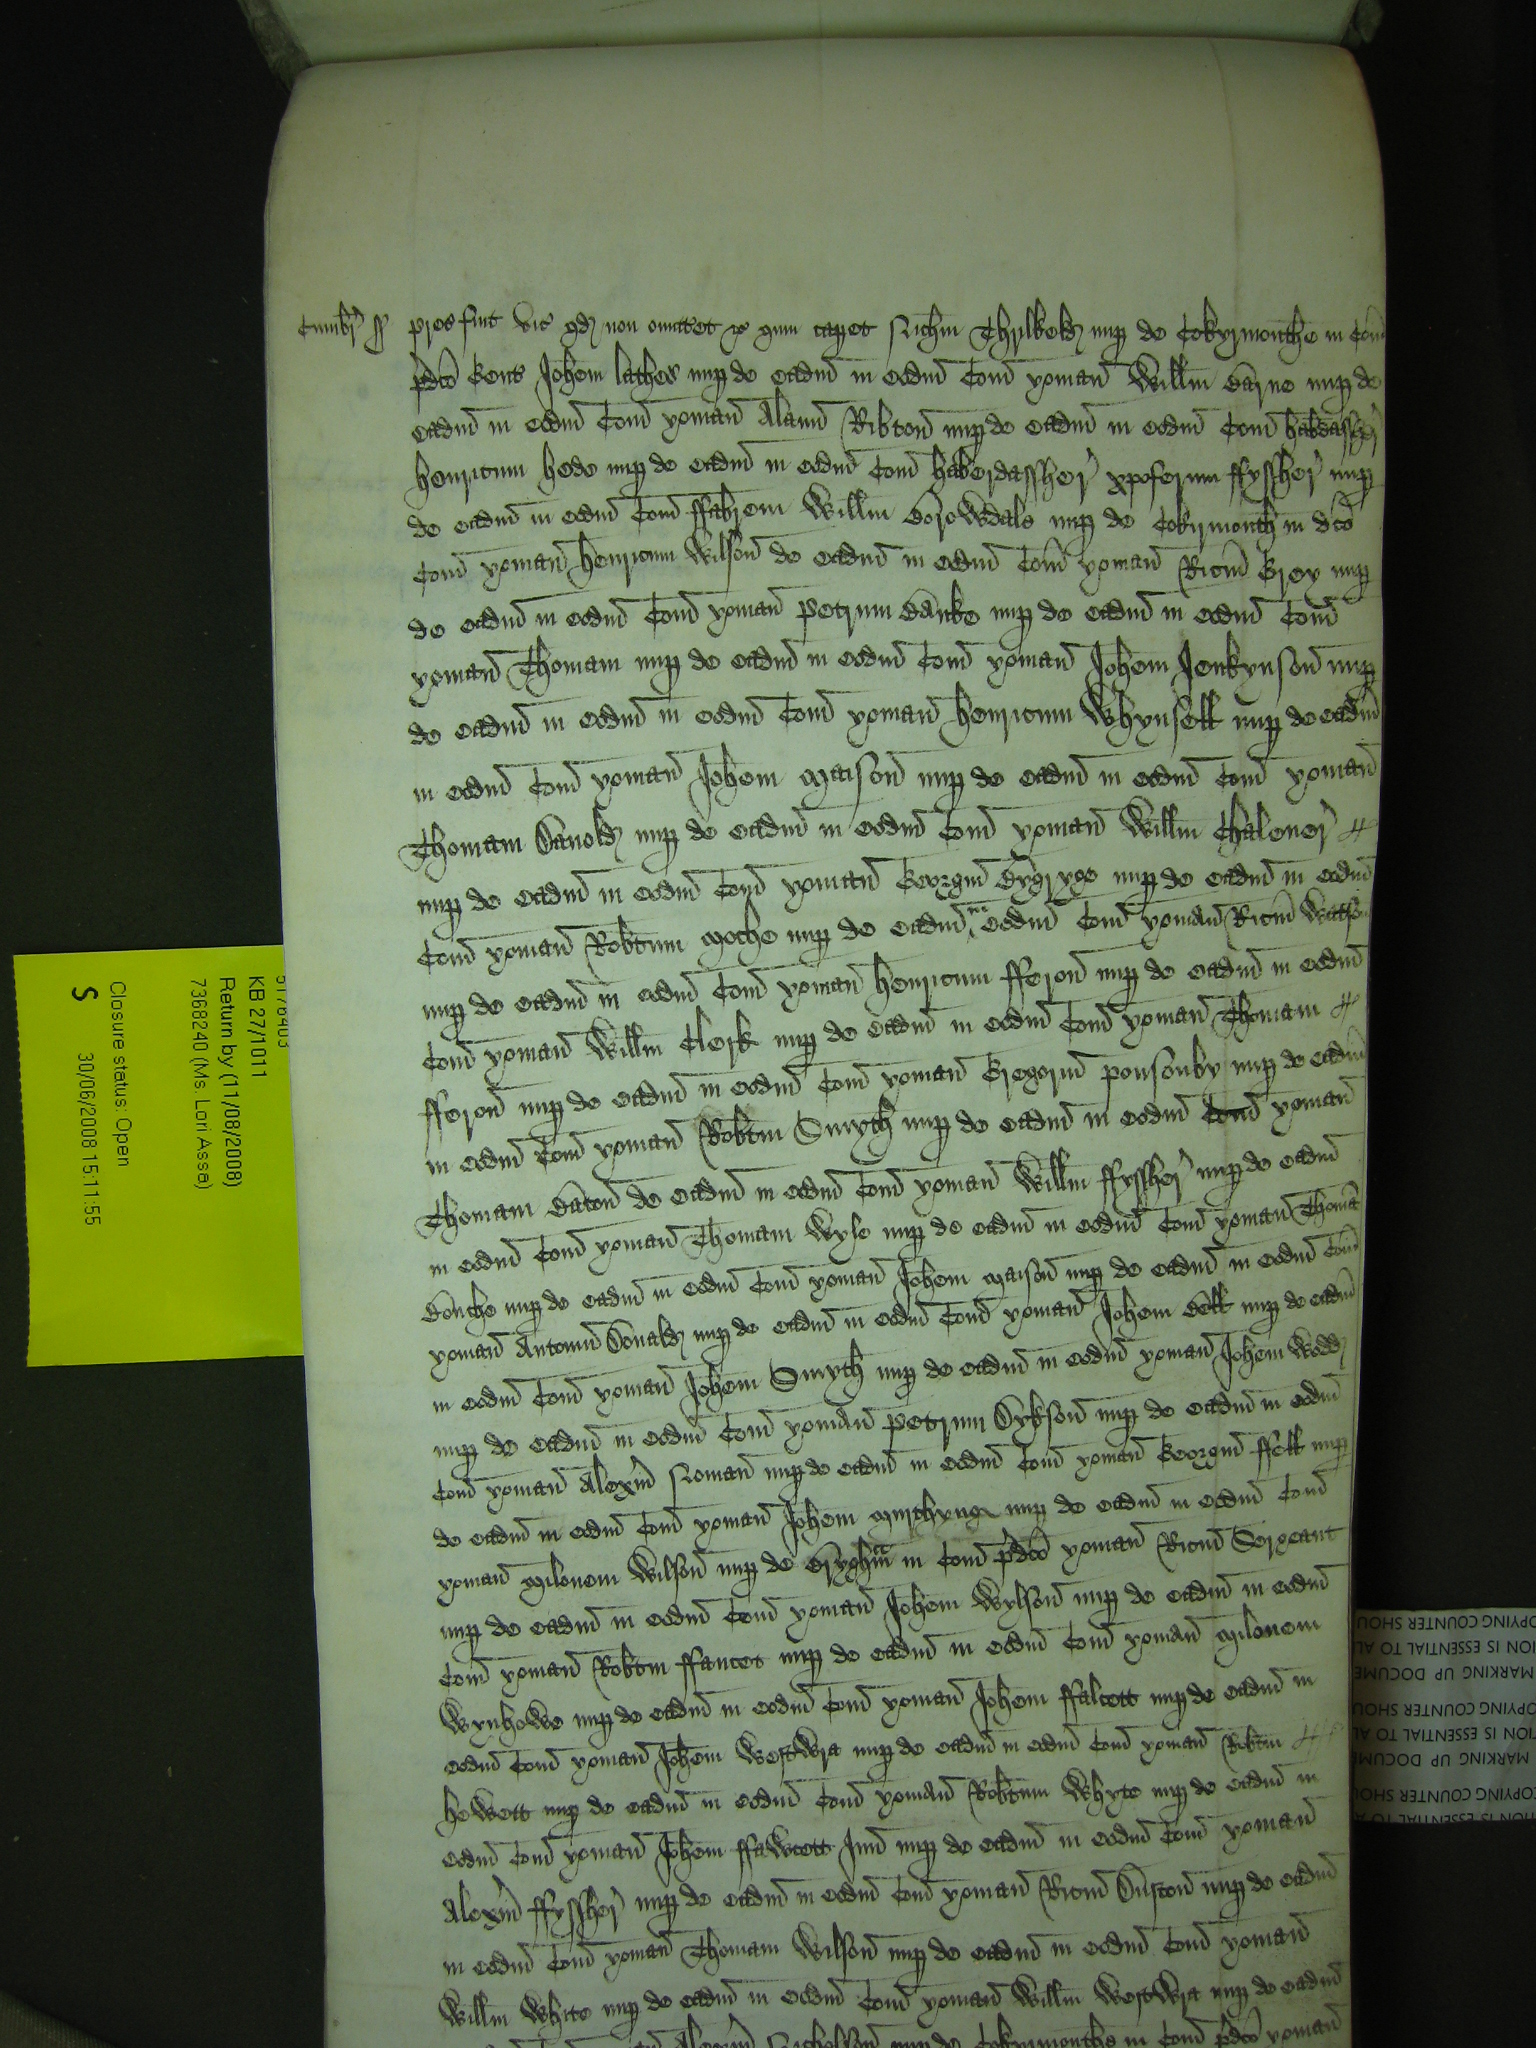 Cumbr ss pres fuit vic qd non omittet &c quin capet Nichm Thrilkeld nup de Cokyrmouthe in Com
pdco Gent Johem lathes nup de eadm in eodm Com yoman Willm Barne nup de
eadm in eodm Com yoman Alanu Ribton nup de eadm in eodm Com habdassher
henricum hede nup de eadm in eodm Com haberdassher xpoferum ffyssher nup
de eadm in eodm Com ffabrem Willm Borowdale nup de Cokirmouth in dco
Com yoman henricum Wilson de eadm in eodm Com yoman Ricm Grey nup
de eadm in eodm Com yoman Petrum Banke nup de eadm in eodm Com
yoman Thomam nup de eadm in eodm Com yoman Johem Jenkynson nup
de eadm in eodm in eodm Com yoman henricum Whynfell nup de eadm
in eodm Com yoman Johem Maison nup de eadm in eodm Com yoman
Thomam nup de eadm in eodm Com yoman Willm Thalener
nup de eadm in eodm Com yoman Georgiu nup de eadm in eodm
Com yoman Robtum Mothe nup de eadm in eodm Com yoman Ricm Watson
nup de eadm in eodm Com yoman henricum fferon nup de eadm in eodm
Com yoman Willm Clerk nup de eadm in eodm Com yoman Thomam
fferon nup de eadm in eodm Com yoman Gregoriu ponsonby nup de eadm
in eodm Com yoman Robtm Smyth nup de eadm in eodm Com yoman
Thomam de eadm in eodm Com yoman Willm ffyssher nup de eadm
in eodm Com yoman Thomam Wyse nup de eadm in eodm Com yoman Thoma
Bouche nup de eadm in eodm Com yoman Johem Maison nup de eadm in eodm Com
yoman Antoniu Donald nup de eadm in eodm Com yoman Johem Bell nup de eadm
in eodm Com yoman Johem Smyth nup de eadm in eodm yoman Johem Wodd
nup de eadm in eodm Com yoman Petrum Dykson nup de eadm in eodm
Com yoman Alexm Noman nup de eadm in eodm Com yoman Georgiu ffell nup
de eadm in eodm Com yoman Johem nup de eadm in eodm Com
yoman Milonem Wilson nup de Bryghm in Com pdco yoman Ricm Sergeant
nup de eadm in eodm Com yoman Johem Wylson nup de eadm in eodm
Com yoman Robtm ffaucet nup de eadm in eodm Com yoman Milonem
Wynhowe nup de eadm in eodm Com yoman Johem ffalcett nup de eadm in
eodm Com yoman Johem Westwra nup de eadm in eodm Com yoman Robtm
hewett nup de eadm in eodm Com yoman Robtum Whyte nup de eadm in
eodm Com yoman Johem ffawcett Jun nup de eadm in eodm Com yoman
Alexm ffyssher nup de eadm in eodm Com yoman Ricm nup de eadm
in eodm Com yoman Thomam Wilson nup de eadm in eodm Com yoman
Willm White nup de eadm in eodm Com yoman Willm Westwra nup de eadm
Alexm Nicholson nup de Cokyrmouthe in Com pdco yoman
5176403
KB 27/1011
Return by (11/08/2008)
7368240 (Ms. Lori Assa)
Closure status: Open
S 30/06/2008 15:11:55
OPYING COUNTER SHOU
ION IS ESSENTIAL TO AL
MARKING UP DOCUME
OPYING COUNTER SHOU
ION IS ESSENTIAL TO AL
MARKING UP DOCUME
OPYING COUNTER SHOU
ION IS ESSENTIAL TO A